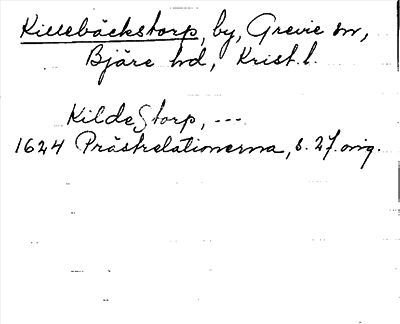 Killebäckstorp, by, Grevie sn,
Bjäre hd, Krist. l.
Kildestorp, ---
1624 Prästrelationerna, s. 27. orig.